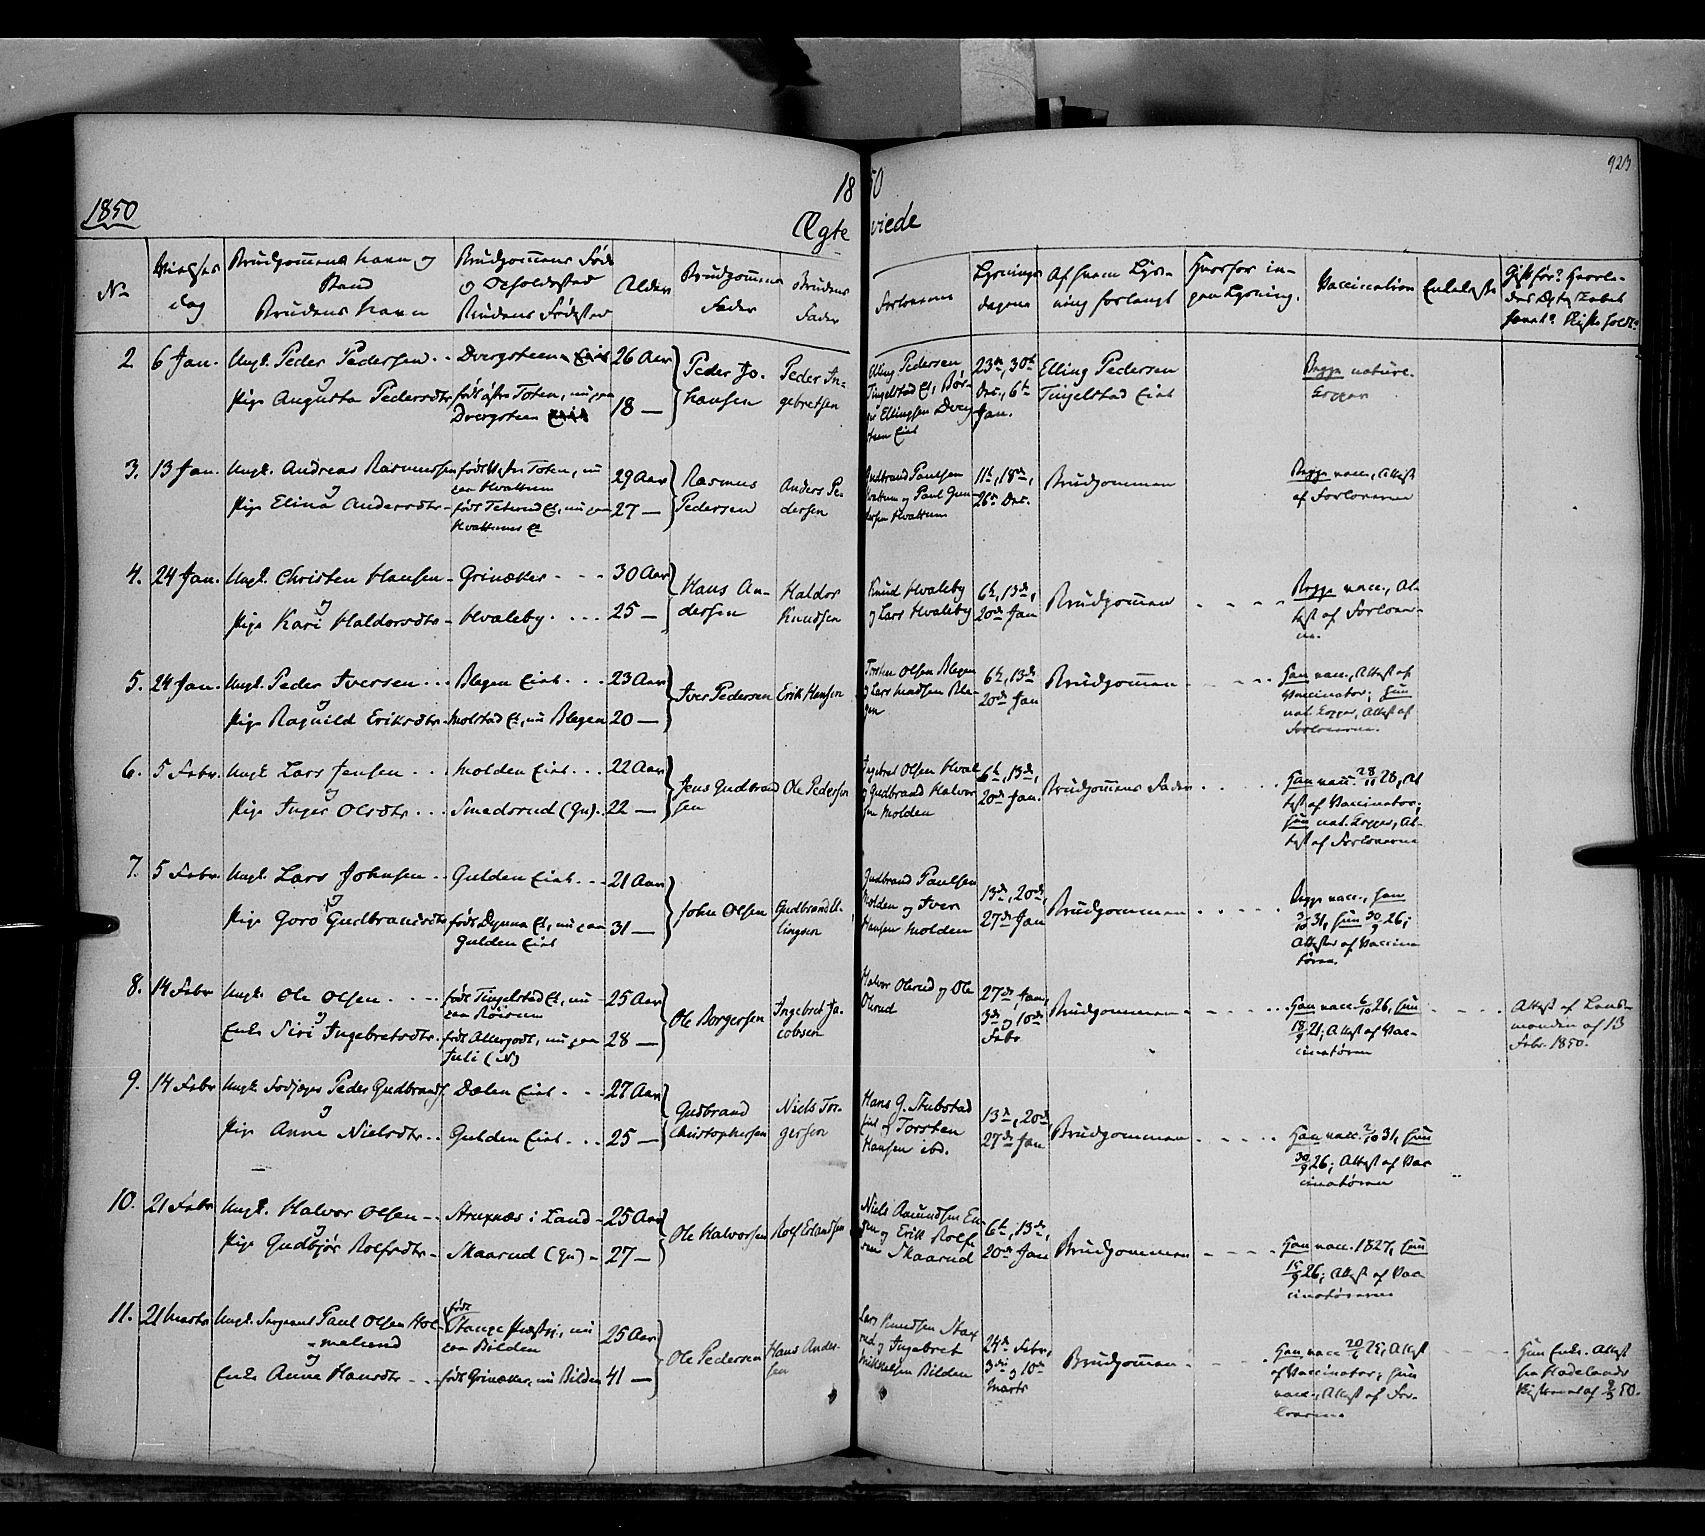 1850
18
50
923
Ægte
viede
No
Vielses
dag
Brudgommens Navn og
Stand
Brudens Navn
Brudgommens Føde
og Opholdssted
Brudens Fødested
Alder
Brudgommens
Fader
Brudens
Fader
Forlovere
Lysnings
dagene
Af hvem Lys-
ning forlangt
Hvorfor in-
gen Lysning.
Vaccination
Enkeligste
Gift før?
2. 6 Jan. Ungk. Peder Pedersen - Dvergsteen 26 Aar
og
Pige Augusta Pedersdtr født Toten, nu paa
Dvergsteen 18 -
Peder Jo-
hansen
Peder In-
gebretsen
Elling Pedersen
Tingelstad Ei, Bør-
ge Ellingsen Dverg-
steen Eiet
23de, 30te
Dec., 6te
Jan.
Elling Pedersen
Tingelstad Eiet
Begge nature.
Kopper
3. 13 Jan. Ungk. Andreas Rasmussen født Toten, nu
paa Hvattum 29 Aar
og
Pige Elina Andersdtr - født Teterud Ei, nu paa
Hvattum Ei 27 -
Rasmus
Pedersen
Anders Pe-
dersen
Gudbrand Paulsen
Hvattum og Paul Gun-
dersen Hvattum
11te, 18de,
26de Dec.
Brudgommen
Begge vacc., Attest
af Forloverne
4. 24 Jan. Ungk. Christen Hansen - Grinaker - - - 30 Aar
og
Pige Kari Haldorsdtr - Hvaleby - - - 25 -
Hans An-
dersen
Haldor
Knudsen
Knud Hvaleby
og Lars Hvaleby
6te, 13de,
20de Jan
Brudgommen
Begge vacc., At-
test af Forlover-
ne.
5. 24 Jan. Ungk. Peder Iversen - - - Blegen Eiet - - - 23 Aar
og
Pige Ragnild Eriksdtr - Molstad Ei, nu Blegen 20 -
Iver Pedersen
Erik Hansen
Torsten Olsen Blegen
og Lars Madsen Ble-
gen
6te, 13de
20de Jan
Brudgommen
Han vacc., Attest af
Vaccinator; Hun
nat. Kopper, Attest af
Forloverne.
6. 5 Febr. Ungk. Lars Jensen - - - Molden Eiet - - - 22 Aar
og
Pige Inger Olsdtr - - - Smedsrud (Gn) - 22 -
Jens Gudbrand
sen
Ole Pedersen
Ingebret Olsen Hval
og Gudbrand Halvor
sen Molden
6te, 13de,
20de Jan.
Brudgommens Fader
Han vacc. 28/11 28, At
test af Vaccinator;
Hun nat. Kopper, At-
test af Forloverne
7. 5 Febr. Ungk. Lars Johnsen - - Gulden Eiet - - - 21 Aar
og
Pige Goro Gudbrandsdtr født Dynna Ei, nu paa
Gulden Eiet 31 -
John Olsen
Gudbrand El-
lingsen
Gudbrand Paulsen
Molden og Iver
Hansen Molden
13de, 20de,
27de Jan
Brudgommen
Begge vacc., Han
3/10 31, Hun 30/9 26;
Attester af Vaccina
tøren.
8. 14 Febr Ungk. Ole Olsen - - - født Tingelstad Ei, nu
paa Røisum 25 Aar
og
Enke Siri Ingebretsdtr - født Allergodt, nu paa
Juli (N) 28 -
Ole Borgersen
Ingebret Ja-
cobsen
Halvor Olerud og Ole
Olerud
27de Jan,
3de og 10de
Febr
Brudgommen
Han vacc 6/10 26, Hun
18/9 21, Attest af Vac-
cinatøren
Attest af Lends-
manden af 13
Febr. 1850.
9. 14 Febr Ungk. Peder Gudbrands. Dælen Eiet - - - 27 Aar
og
Pige Anne Nielsdtr - - Gulden Eiet - - - 25 -
Gudbrand
Christophersen
Niels Tor-
gersen
Hans G. Stubstad
Eiet og Torsten
Hansen ibd.
13de, 20de
27de Jan
Brudgommen
Han vacc. 2/10 31, Hun
30/9 26; Attest af Vac
cinatøren
10. 21 Febr Ungk. Halvor Olsen - - i Land - 25 Aar
og
Pige Gudbjør Rolfsdtr - Skaarud (Gn) - 27 -
Ole Halvorsen
Rolf Erlandsen
Niels Amundsen En-
gen og Erik Rolf
sen Skaarud
6te, 13de,
20de Jan
Brudgommen
Han vacc. 1827, Hun
15/9 26; Attest af Vac
cinatørerne
11. 21 Marts Ungk. Sergeant Paul Olsen Hol-
melund
født
Stange Præstgj., nu
paa Bilden 25 Aar
og
Enke Anne Hansdtr - - født Grinaker, nu Bilden 41 -
Ole Pedersen
Hans Ander-
sen
Lars Knudsen Stax
rud og Ingebret
Mikkelsen Bilden
24de Febr,
3die og 10de
Marts
Brudgommen
Han vacc 20/6 25, Attest
af Vaccinator; Hun
vacc., Attest af For-
loverne
Hun Enke. Attest
fra Hadelands
Skifteret af 50.